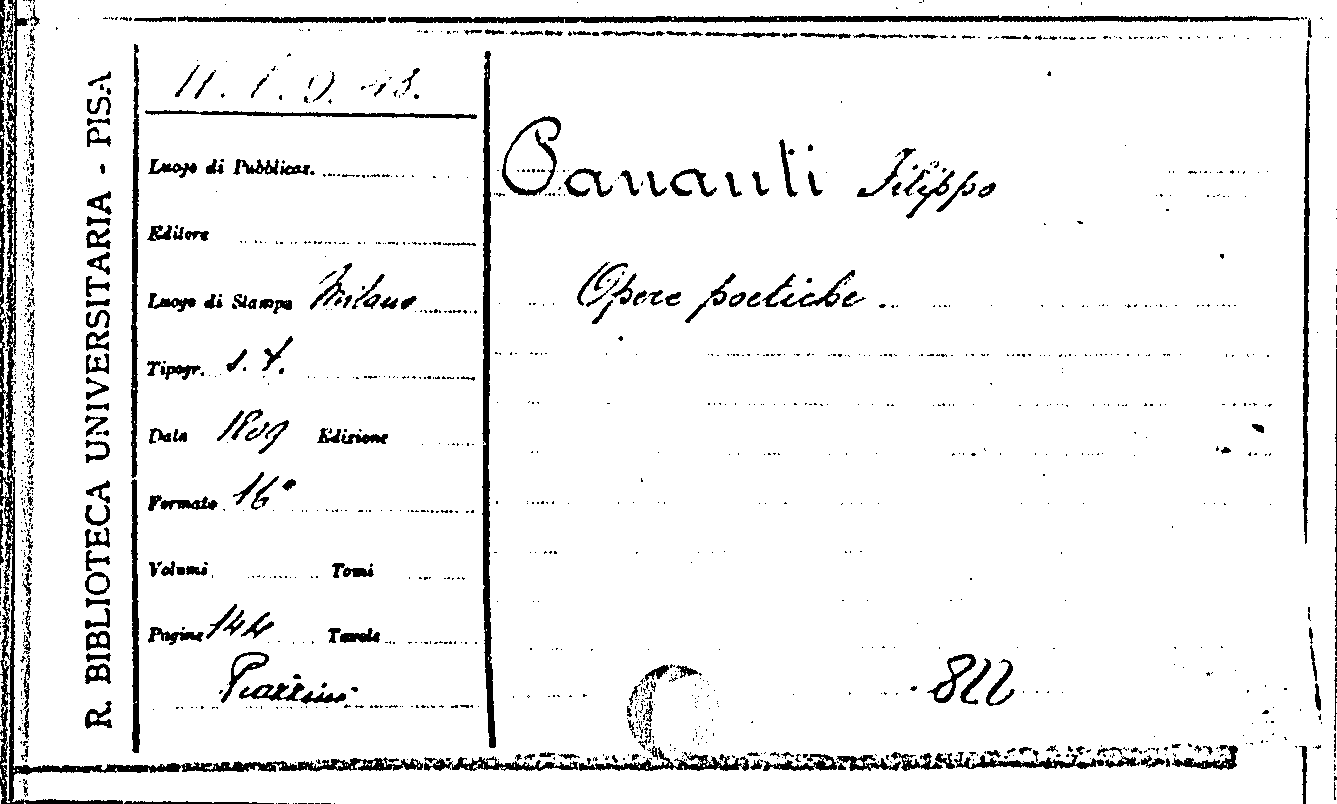 R. BIBLIOTECA UNIVERSITARIA - PISA
H. f. 9. 43.
Luogo di Pubblicaz.
Editore
Luogo di Stampa Milano
Tipogr. s. t.
Data 1809 Edizione
Formato 16°
Volumi Tomi
Pagine 144 Tavole
Pananti Filippo
Opere poetiche.
822